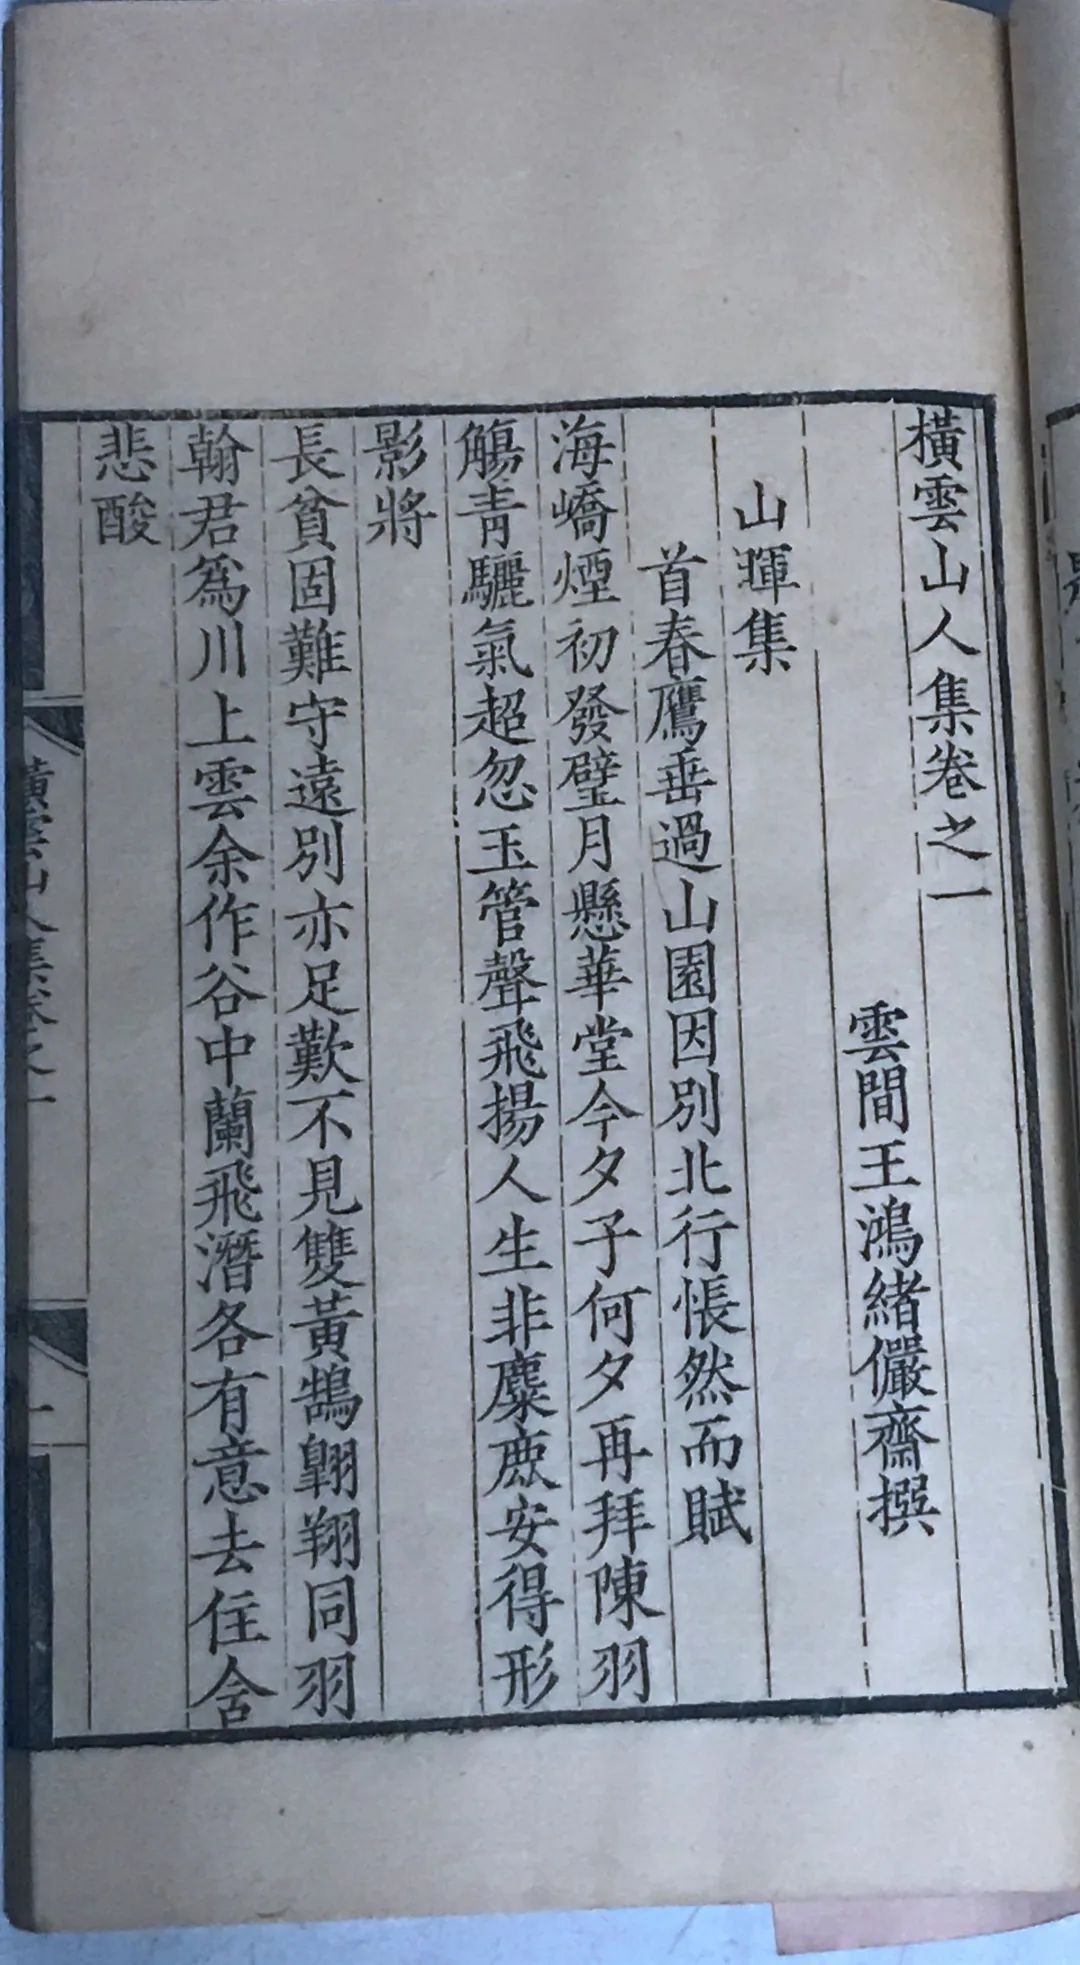 橫雲山人集卷之一
雲間王鴻緒儼齋撰
山暉集
首春鷹垂過山園因別北行悵然而賦
海嶠煙初發璧月懸華堂今夕子何夕再拜陳羽
觴青驪氣超忽玉管聲飛揚人生非麋麃安得形
影將
長貧固難守遠別亦足歎不見雙黃鵠翺翔同羽
翰君爲川上雲余作谷中蘭飛潛各有意去住含
悲酸
橫雲山人集卷之一
一